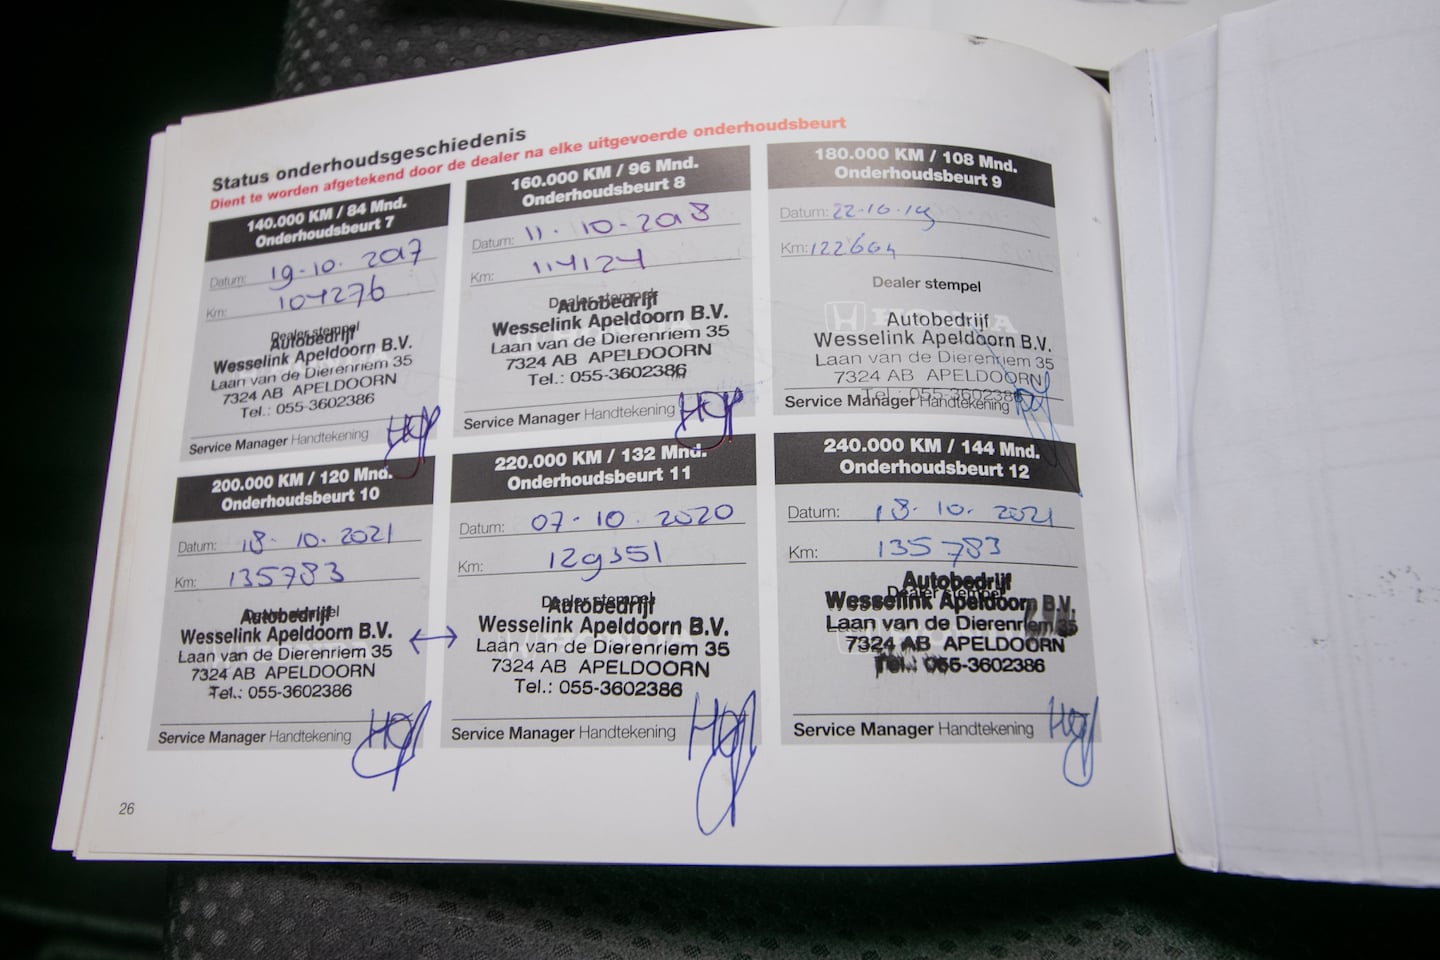 Status onderhoudsgeschiedenis
Dient te worden afgetekend door de dealer na elke uitgevoerde onderhoudsbeurt
140.000 KM / 84 Mnd.
Onderhoudsbeurt 7
Datum: 19-10. 2017
Km: 104276
Dealer stempel
Autobedrijf
Wesselink Apeldoorn B.V.
Laan van de Dierenriem 35
7324 AB APELDOORN
Tel.: 055-3602386
Service Manager Handtekening
160.000 KM / 96 Mnd.
Onderhoudsbeurt 8
Datum: 11. 10-2018
Km: 114124
Dealer stempel
Autobedrijf
Wesselink Apeldoorn B.V.
Laan van de Dierenriem 35
7324 AB APELDOORN
Tel.: 055-3602386
Service Manager Handtekening
180.000 KM / 108 Mnd.
Onderhoudsbeurt 9
Datum: 22-10-19
Km: 122604
Dealer stempel
HONDA
Autobedrijf
Wesselink Apeldoorn B.V.
Laan van de Dierenriem 35
7324 AB APELDOORN
Tel.: 055-3602386
Service Manager Handtekening
200.000 KM / 120 Mnd.
Onderhoudsbeurt 10
Datum: 18. 10. 2021
Km: 135783
Autobedrijf
Wesselink Apeldoorn B.V.
Laan van de Dierenriem 35
7324 AB APELDOORN
Tel.: 055-3602386
Service Manager Handtekening
220.000 KM / 132 Mnd.
Onderhoudsbeurt 11
Datum: 07-10. 2020
Km: 129351
Dealer stempel
Autobedrijf
Wesselink Apeldoorn B.V.
Laan van de Dierenriem 35
7324 AB APELDOORN
Tel.: 055-3602386
Service Manager Handtekening
240.000 KM / 144 Mnd.
Onderhoudsbeurt 12
Datum: 18. 10. 2021
Km: 135783
Dealer stempel
Autobedrijf
Wesselink Apeldoorn B.V.
Laan van de Dierenriem 35
7324 AB APELDOORN
Tel.: 055-3602386
Service Manager Handtekening
26